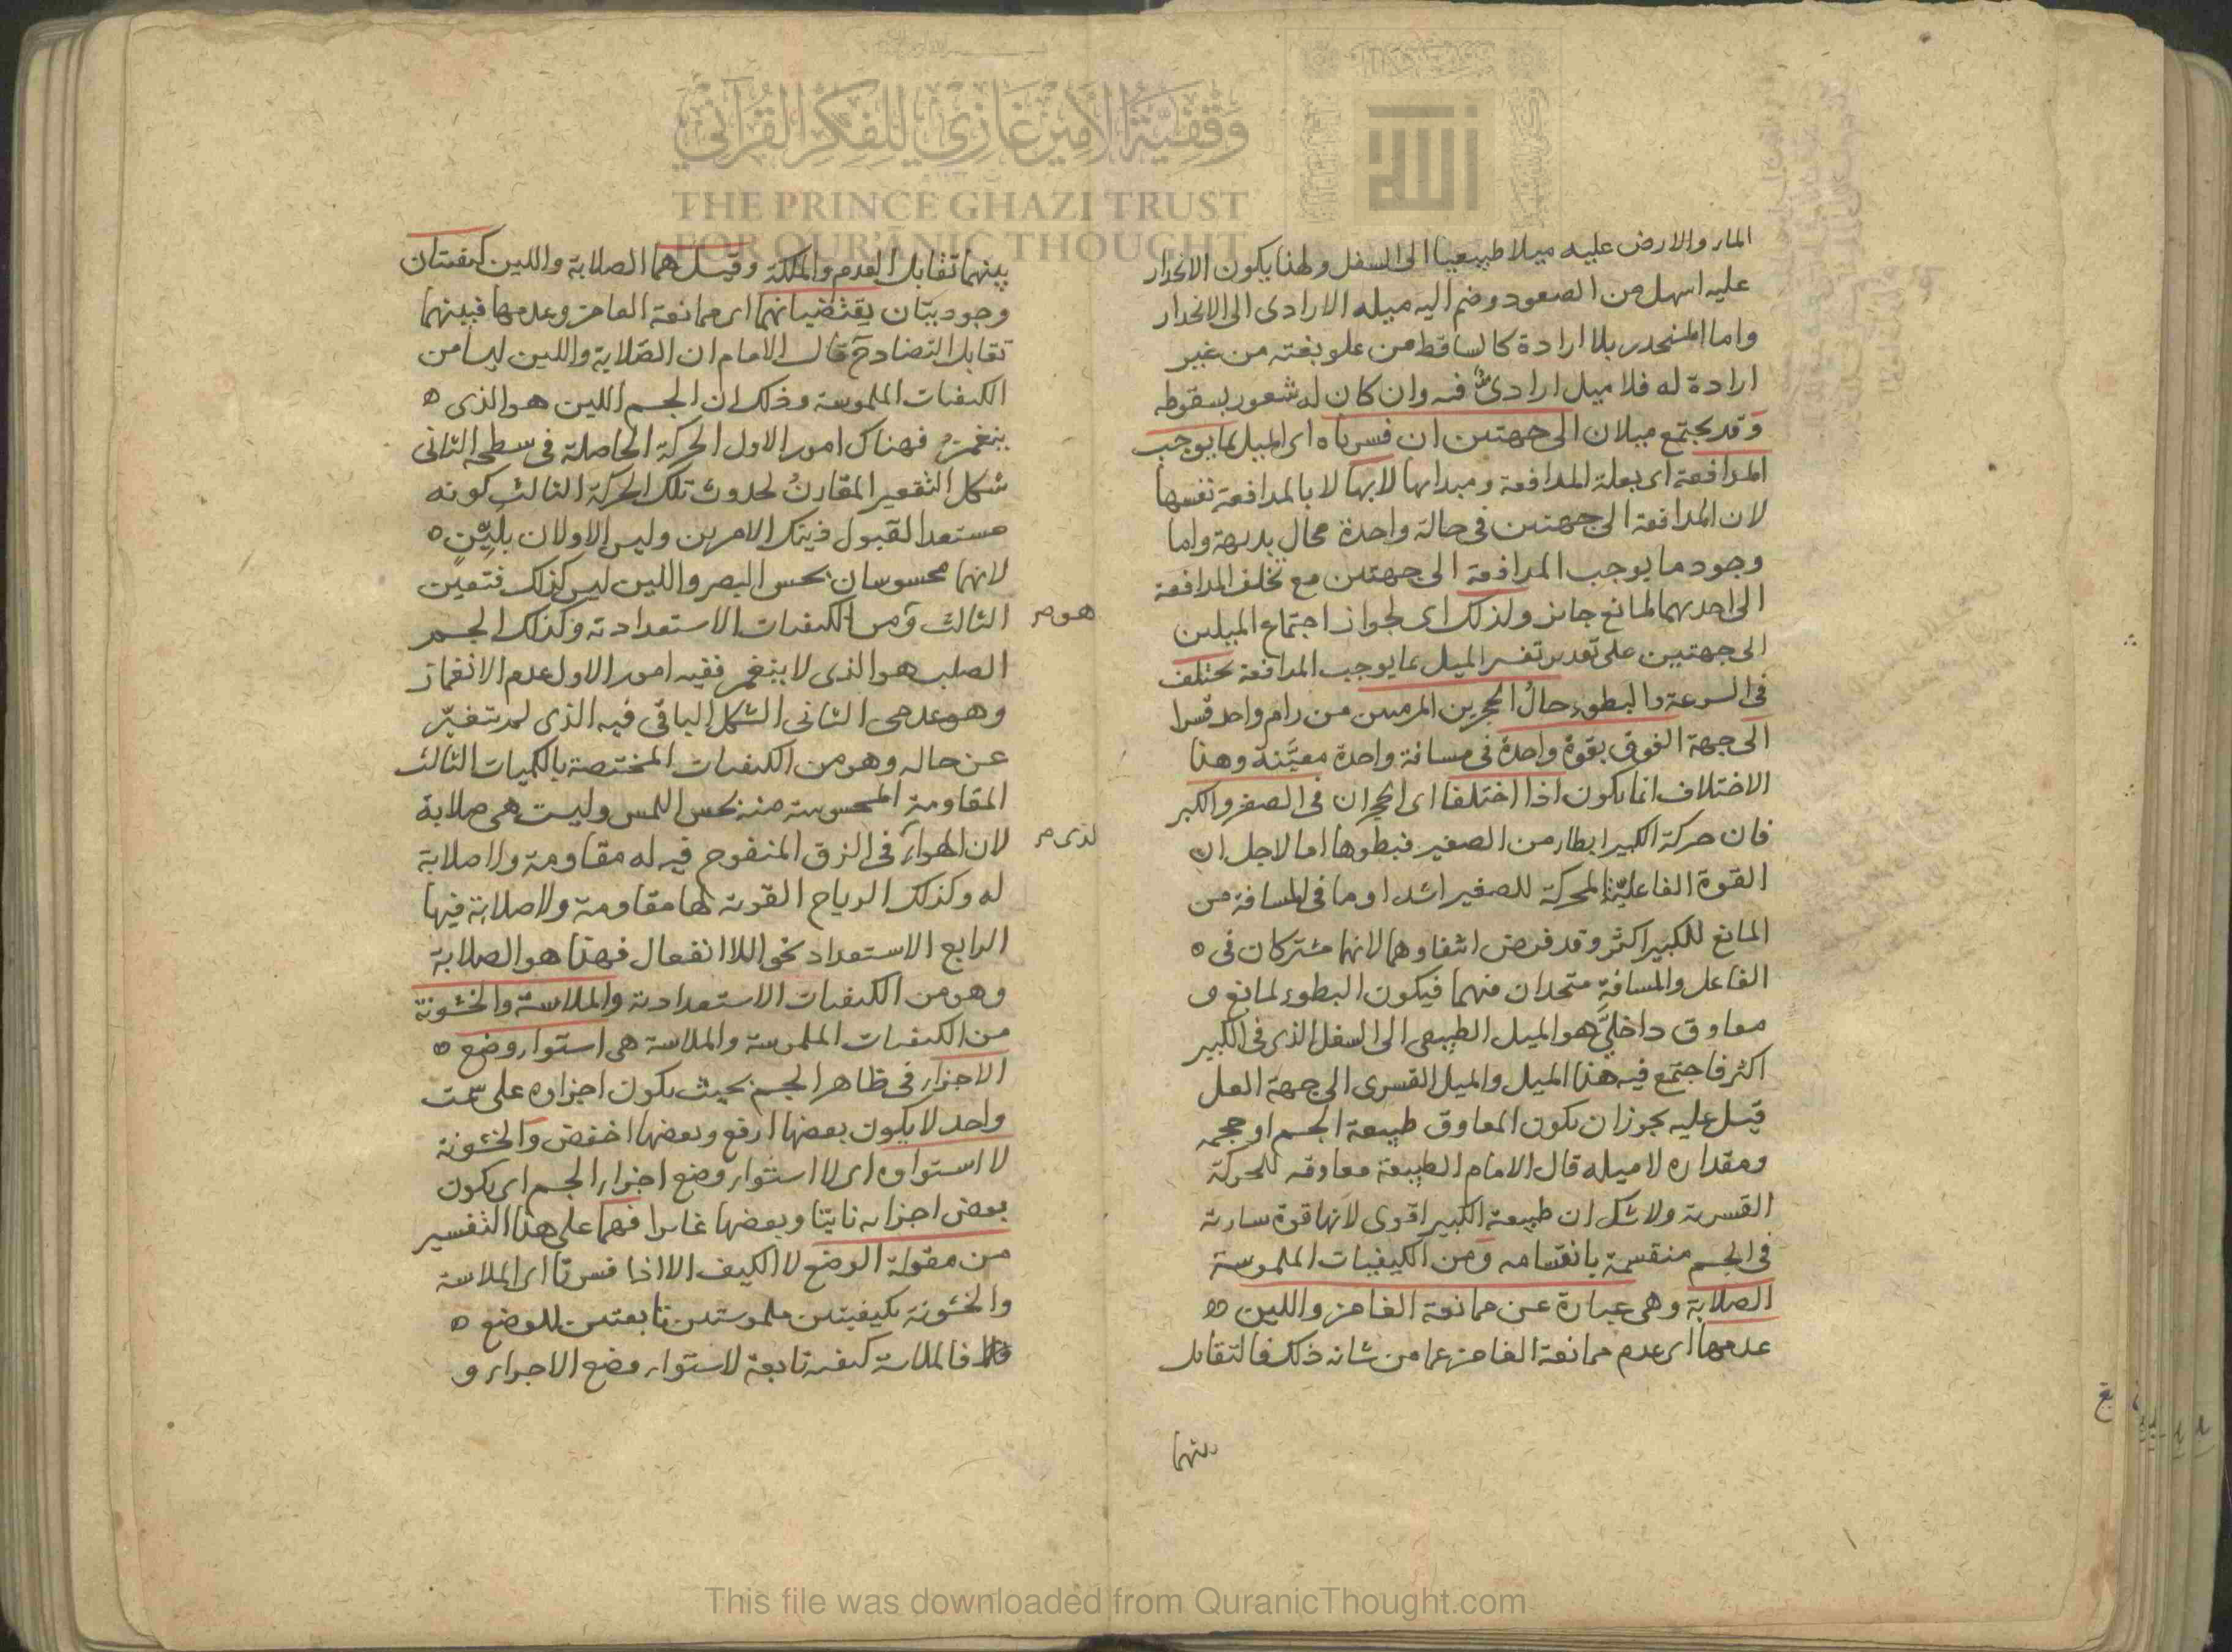 وقفية الأمير غازي للفكر القرآني
THE PRINCE GHAZI TRUST
FOR QUR'ANIC THOUGHT
الله
الماء والارض عليه ميلا طبيعيا الى السفل ولهذا يكون الانحدار
عليه اسهل من الصعود وضم اليه ميله الارادى الى الانحدار
واما المنحدر بلا ارادة كالساقط من علو بغته من غير
ارادة له فلا ميل ارادى فيه وان كان له شعور بسقوطه
وقد يجتمع ميلان الى جهتين ان فسرناه اى الميل بما يوجب
المدافعة اى بعلة المدافعة ومبدايها لا بالمدافعة نفسها
لان المدافعة الى جهتين فى حالة واحدة محال بديهة واما
وجود ما يوجب المدافعة الى جهتين مع تخلف المدافعة
الى احديهما لمانع جايز ولذلك اى لجواز اجتماع الميلين
الى جهتين على تقدير تفسير الميل بما يوجب المدافعة يختلف
فى السرعة والبطوء حال الحجرين المرميين من رام واحد قسرا
الى جهة الفوق بقوة واحدة فى مسافة واحدة معينة وهذا
الاختلاف انما يكون اذا اختلفا اى الحجران فى الصغر والكبر
فان حركة الكبير ابطاء من الصغير فبطوها اما لاجل ان
القوة الفاعلية المحركة للصغير اشد او ما فى المسافة من
المانع للكبير اكثر وقد فرض انتفاوهما لانهما مشتركان فى
الفاعل والمسافة متحدان فيهما فيكون البطوء لمانع و
معاوق داخلى هو الميل الطبيعى الى السفل الذى فى الكبير
اكثر فاجتمع فيه هذا الميل والميل القسرى الى جهة العل
قيل عليه يجوز ان يكون المعاوق طبيعة الجسم او حجمه
ومقداره لا ميله قال الامام الطبيعة معاوقه للحركة
القسرية ولا شك ان طبيعة الكبير اقوى لانها قوة سارية
فى الجسم منقسمة بانقسامه ومن الكيفيات الملموسة
الصلابة وهى عبارة عن ممانعة الغامز واللين
عدمها اى عدم ممانعة الغامز عما من شانه ذلك فالتقابل
بينهما
بينهما تقابل العدم والملكة وقيل هما الصلابة واللين كيفيتان
وجوديتان يقتضيانهما اى ممانعة الغامز وعدمها فبينهما
تقابل التضاد ح قال الامام ان الصلابة واللين ليسا من
الكيفيات الملموسة وذلك ان الجسم اللين هو الذى
ينغمز فهناك امور الاول الحركة الحاصلة فى سطحه الثانى
شكل التقعير المقارن لحدوث تلك الحركة الثالث كونه
مستعدا لقبول ذينك الامرين وليس الاولان بلين
لانهما محسوسان بحس البصر واللين ليس كذلك فتعين
الثالث وهو من الكيفيات الاستعدادية وكذلك الجسم
الصلب هو الذى لا ينغمز ففيه امور الاول عدم الانغماز
وهو عدمى الثانى الشكل الباقى فيه الذى لم يتغير
عن حاله وهو من الكيفيات المختصة بالكميات الثالث
المقاومة المحسوسة منه بحس اللمس وليست هى صلابة
لان الهواء الذى فى الزق المنفوح فيه له مقاومة ولا صلابة
له وكذلك الرياح القوية لها مقاومة ولا صلابة فيها
الرابع الاستعداد نحو اللاانفعال فهذا هو الصلابة
وهو من الكيفيات الاستعدادية والملاسة والخشونة
من الكيفيات الملموسة والملاسة هى استواء وضع
الاجزاء فى ظاهر الجسم بحيث يكون اجزاوه على سمت
واحد لا يكون بعضها ارفع وبعضها اخفض والخشونة
لا استواوه اى لا استواء وضع اجزاء الجسم اى يكون
بعض اجزايه ناتئا وبعضها غايرا فهما على هذا التفسير
من مقولة الوضع لا الكيف الا اذا فسرتا اى الملاسة
والخشونة بكيفيتين ملموستين تابعتين للوضع
فالملاسة كيفية تابعة لاستواء وضع الاجزاء و
This file was downloaded from QuranicThought.com